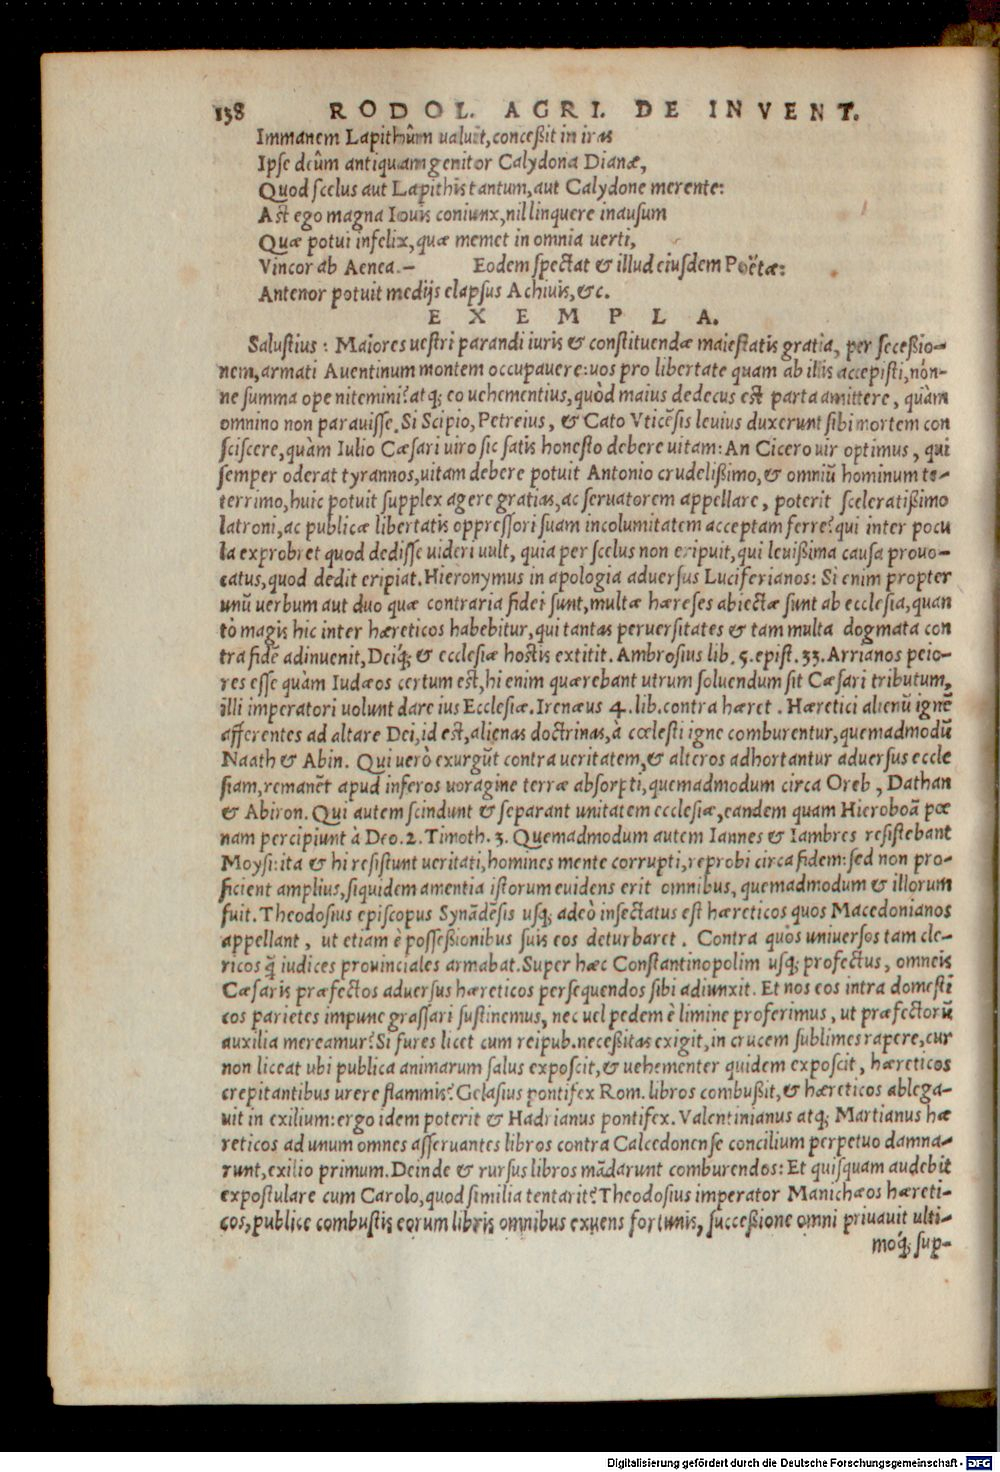 138 RODOL. AGRI. DE INVENT.
Immanem Lapithûm ualuit, conceßit in iras
Ipse deûm antiquam genitor Calydona Dianæ,
Quod scelus aut Lapithis tantum, aut Calydone merente:
Ast ego magna Iouis coniunx, nil linquere inausum
Quæ potui infelix, quæ memet in omnia uerti,
Vincor ab Aenea.— Eodem spectat & illud eiusdem Poëtæ:
Antenor potuit medijs elapsus Achiuis, &c.
EXEMPLA.
Salustius: Maiores uestri parandi iuris & constituendæ maiestatis gratia, per seceßio-
nem, armati Auentinum montem occupauere: uos pro libertate quam ab illis accepisti, nón-
ne summa ope nitemini? atq; eo uehementius, quòd maius dedecus est parta amittere, quàm
omnino non parauisse. Si Scipio, Petreius, & Cato Vticēsis leuius duxerunt sibi mortem con
sciscere, quàm Iulio Cæsari uiro sic satis honesto debere uitam: An Cicero uir optimus, qui
semper oderat tyrannos, uitam debere potuit Antonio crudelißimo, & omniū hominum te-
terrimo, huic potuit supplex agere gratias, ac seruatorem appellare, poterit sceleratißimo
latroni, ac publicæ libertatis oppressori suam incolumitatem acceptam ferre? qui inter pocu
la exprobret quod dedisse uideri uult, quia per scelus non eripuit, qui leuißima causa prouo-
catus, quod dedit eripiat. Hieronymus in apologia aduersus Luciferianos: Si enim propter
unū uerbum aut duo quæ contraria fidei sunt, multæ hæreses abiectæ sunt ab ecclesia, quan
tò magis hic inter hæreticos habebitur, qui tantas peruersitates & tam multa dogmata con
tra fidē adinuenit, Deiq́; & ecclesiæ hostis extitit. Ambrosius lib. 5. epist. 33. Arrianos peio-
res esse quàm Iudæos certum est, hi enim quærebant utrum soluendum sit Cæsari tributum,
illi imperatori uolunt dare ius Ecclesiæ. Irenæus 4. lib. contra hæret. Hæretici alienū ignē
afferentes ad altare Dei, id est, alienas doctrinas, à cœlesti igne comburentur, quemadmodū
Naath & Abin. Qui uerò exurgūt contra ueritatem, & alteros adhortantur aduersus eccle
siam, remanēt apud inferos uoragine terræ absorpti, quemadmodum circa Oreb, Dathan
& Abiron. Qui autem scindunt & separant unitatem ecclesiæ, eandem quam Hieroboā pœ
nam percipiunt à Deo. 2. Timoth. 3. Quemadmodum autem Iannes & Iambres resistebant
Moysi: ita & hi resistunt ueritati, homines mente corrupti, reprobi circa fidem: sed non pro-
ficient amplius, siquidem amentia istorum euidens erit omnibus, quemadmodum & illorum
fuit. Theodosius episcopus Synādēsis usq; adeò insectatus est hæreticos quos Macedonianos
appellant, ut etiam è posseßionibus suis eos deturbaret. Contra quos uniuersos tam cle-
ricos q̄ iudices prouinciales armabat. Super hæc Constantinopolim usq; profectus, omneis
Cæsaris præfectos aduersus hæreticos persequendos sibi adiunxit. Et nos eos intra domesti
cos parietes impune grassari sustinemus, nec uel pedem è limine proferimus, ut præfectorū
auxilia mereamur? Si fures licet cum reipub. neceßitas exigit, in crucem sublimes rapere, cur
non liceat ubi publica animarum salus exposcit, & uehementer quidem exposcit, hæreticos
crepitantibus urere flammis? Gelasius pontifex Rom. libros combußit, & hæreticos ablega-
uit in exilium: ergo idem poterit & Hadrianus pontifex. Valentinianus atq; Martianus hæ
reticos ad unum omnes asseruantes libros contra Calcedonense concilium perpetuo damna-
runt, exilio primum. Deinde & rursus libros mādarunt comburendos: Et quisquam audebit
expostulare cum Carolo, quod similia tentarit? Theodosius imperator Manichæos hæreti-
cos, publice combustis eorum libris omnibus exuens fortunis, succeßione omni priuauit ulti-
moq́; sup-
Digitalisierung gefördert durch die Deutsche Forschungsgemeinschaft - DFG